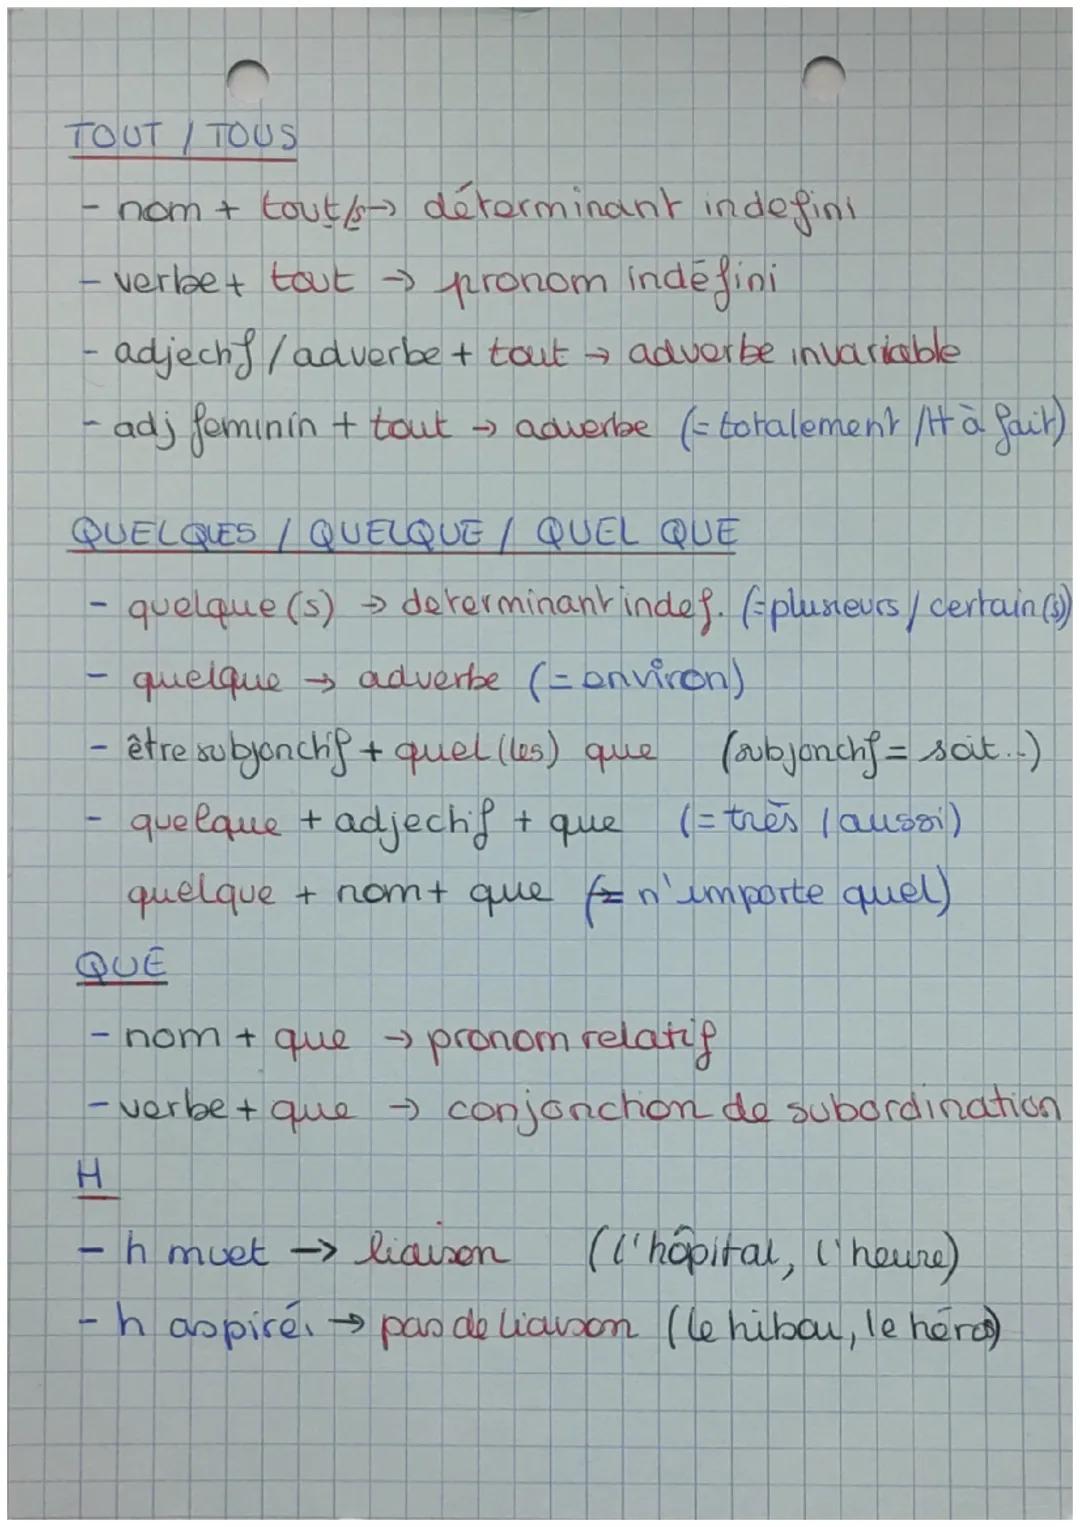 TOUT / TOUS
- nom + tout/s → déterminant indefini
- verbe + tout → pronom indéfini
- adjectif / adverbe + tout → adverbe invariable
- adj feminin + tout → adverbe (= totalement / tt à fait)
QUELQUES / QUELQUE / QUEL QUE
- quelque(s) → determinant indef. (= plusieurs / certain(s))
- quelque → adverbe (= environ)
- être subjonctif + quel(les) que (subjonctif = soit...)
- quelque + adjectif + que (= très / aussi)
quelque + nom + que (= n'importe quel)
QUE
- nom + que → pronom relatif
- verbe + que → conjonction de subordination
H
- h muet → liaison (l'hôpital, l'heure)
- h aspiré → pas de liaison (le hibou, le héros)